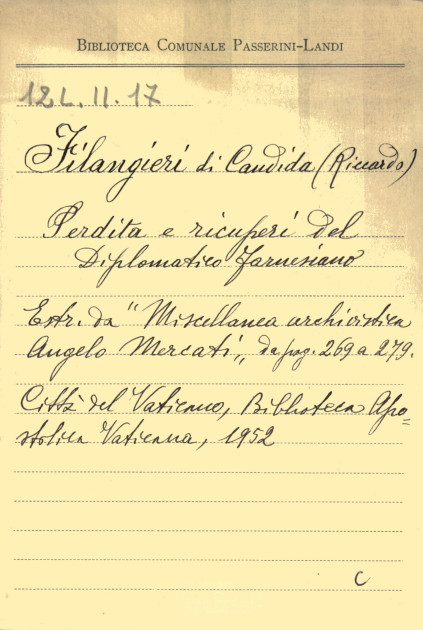 BIBLIOTECA COMUNALE PASSERINI-LANDI
12L.II.17
Filangieri di Candida (Riccardo)
Perdita e ricuperi del
Diplomatico Farnesiano
Estr. da "Miscellanea archivistica
Angelo Mercati„ da pag. 269 a 279.
Città del Vaticano, Biblioteca Apo=
stolica Vaticana, 1952
C